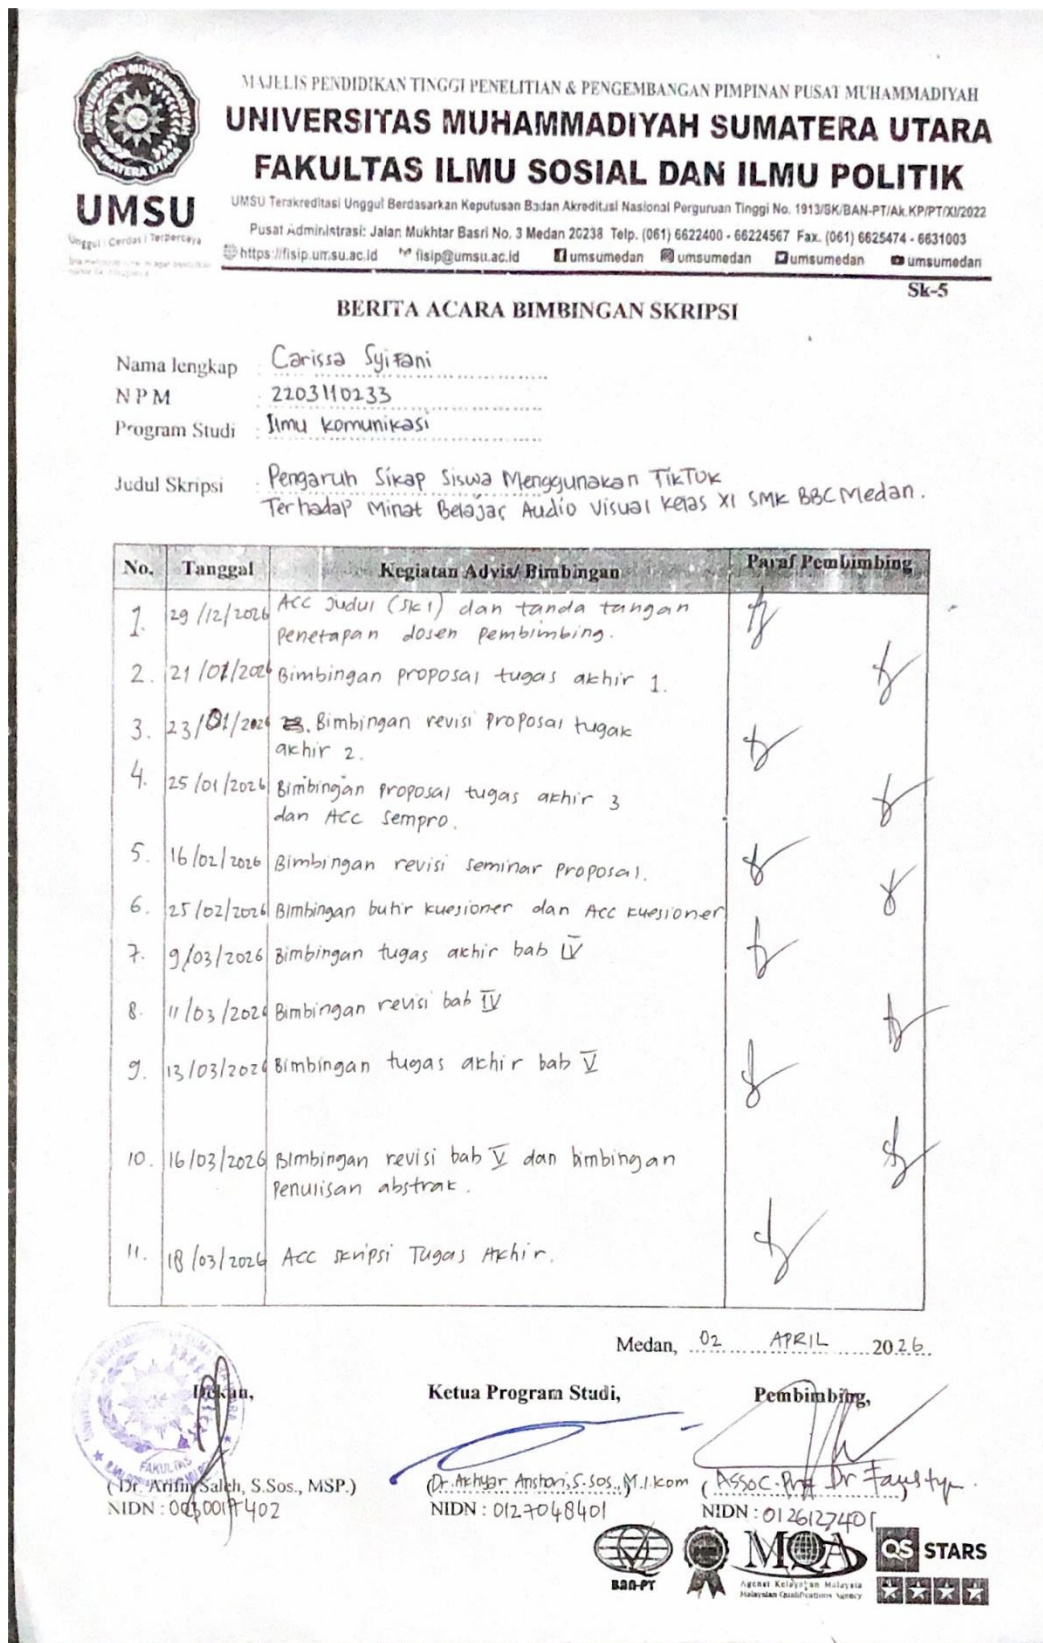 MAJELIS PENDIDIKAN TINGGI PENELITIAN & PENGEMBANGAN PIMPINAN PUSAT MUHAMMADIYAH
UNIVERSITAS MUHAMMADIYAH SUMATERA UTARA
FAKULTAS ILMU SOSIAL DAN ILMU POLITIK
UMSU
Unggul | Cerdas | Terpercaya
UMSU Terakreditasi Unggul Berdasarkan Keputusan Badan Akreditasi Nasional Perguruan Tinggi No. 1913/SK/BAN-PT/Ak.KP/PT/XI/2022
Pusat Administrasi: Jalan Mukhtar Basri No. 3 Medan 20238 Telp. (061) 6622400 - 66224567 Fax. (061) 6625474 - 6631003
https://fisip.umsu.ac.id fisip@umsu.ac.id umsumedan umsumedan umsumedan umsumedan
Sk-5
BERITA ACARA BIMBINGAN SKRIPSI
Nama lengkap : Carissa Syifani
NPM : 2203110233
Program Studi : Ilmu komunikasi
Judul Skripsi : Pengaruh Sikap Siswa Menggunakan TikTok
Terhadap Minat Belajar Audio Visual kelas XI SMK BBC Medan.
No. Tanggal Kegiatan Advis/ Bimbingan Paraf Pembimbing
1. 29/12/2026 ACC Judul (SK1) dan tanda tangan
penetapan dosen pembimbing.
2. 21/01/2026 Bimbingan proposal tugas akhir 1.
3. 23/01/2026 Bimbingan revisi proposal tugak
akhir 2.
4. 25/01/2026 Bimbingan proposal tugas akhir 3
dan ACC sempro.
5. 16/02/2026 Bimbingan revisi seminar proposal.
6. 25/02/2026 Bimbingan butir kuesioner dan Acc kuesioner
7. 9/03/2026 Bimbingan tugas akhir bab IV
8. 11/03/2026 Bimbingan revisi bab IV
9. 13/03/2026 Bimbingan tugas akhir bab V
10. 16/03/2026 Bimbingan revisi bab V dan bimbingan
penulisan abstrak.
11. 18/03/2026 ACC skripsi Tugas Akhir.
Medan, 02 APRIL 2026.
Dekan, Ketua Program Studi, Pembimbing,
(Dr. Arifin Saleh, S.Sos., MSP.) (Dr. Akhyar Anshori, S.Sos., M.I.Kom) (Assoc. Prof Dr
NIDN : 0030017402 NIDN : 0127048401 NIDN : 0126127401
BAN-PT MQA QS STARS
Agensi Kelayakan Malaysia
Malaysian Qualifications Agency